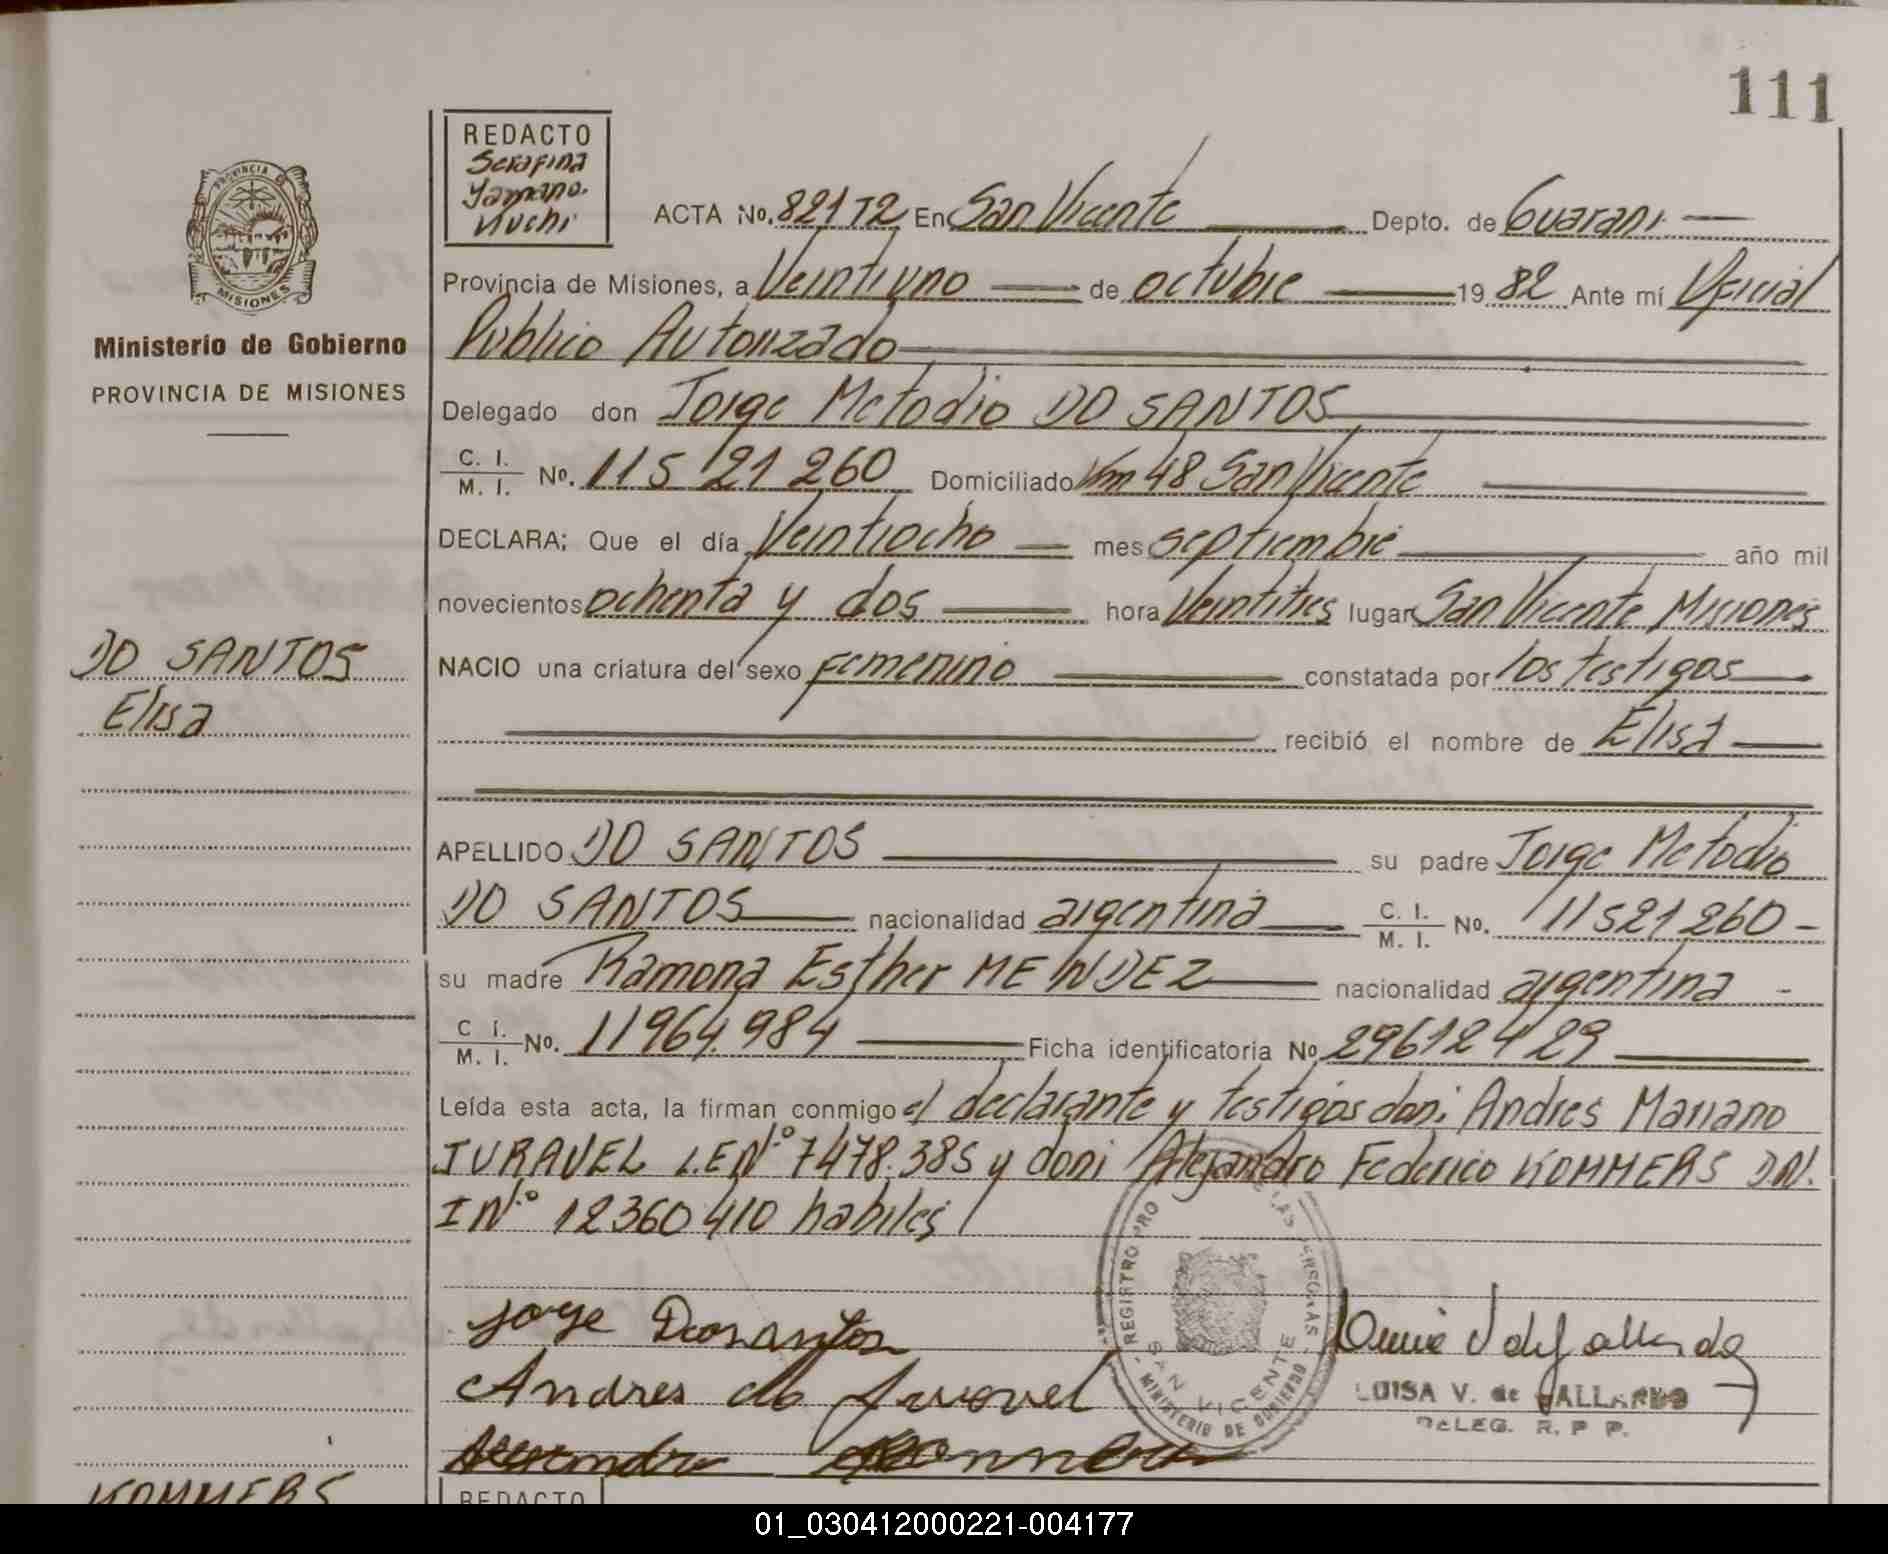 111
REDACTO
Serafina
Yamano.
Kuchi
ACTA No. 821 T2 En San Vicente Depto. de Guarani
Provincia de Misiones, a Veintiuno de octubre 1982 Ante mí Oficial
Publico Autorizado
Delegado don Jorge Metodio DO SANTOS
C. I.
M. I. No. 11521260 Domiciliado Km 48 San Vicente
DECLARA; Que el día Veintiocho mes septiembre año mil
novecientos ochenta y dos hora Veintitres lugar San Vicente Misiones
NACIO una criatura del sexo femenino constatada por los testigos
recibió el nombre de Elisa
APELLIDO DO SANTOS su padre Jorge Metodio
DO SANTOS nacionalidad argentina C. I.
M. I. No. 11521260
su madre Ramona Esther MENDEZ nacionalidad argentina
C. I.
M. I. No. 11964.984 Ficha identificatoria No 29612429
Leída esta acta, la firman conmigo el declarante y testigos don: Andres Mariano
JURAVEL L.E Nº 7478.385 y don: Alejandro Federico KOMMERS D.N.
I Nº 12360410 habiles
Jorge Dosantos
Andres Juravel
LUISA V. de GALLARDO
DELEG. R. P P.
REGISTRO PRO DE LAS PERSONAS
SAN VICENTE
MINISTERIO DE GOBIERNO
PROVINCIA DE
MISIONES
Ministerio de Gobierno
PROVINCIA DE MISIONES
DO SANTOS
Elisa
KOMMERS
REDACTO
01_030412000221-004177